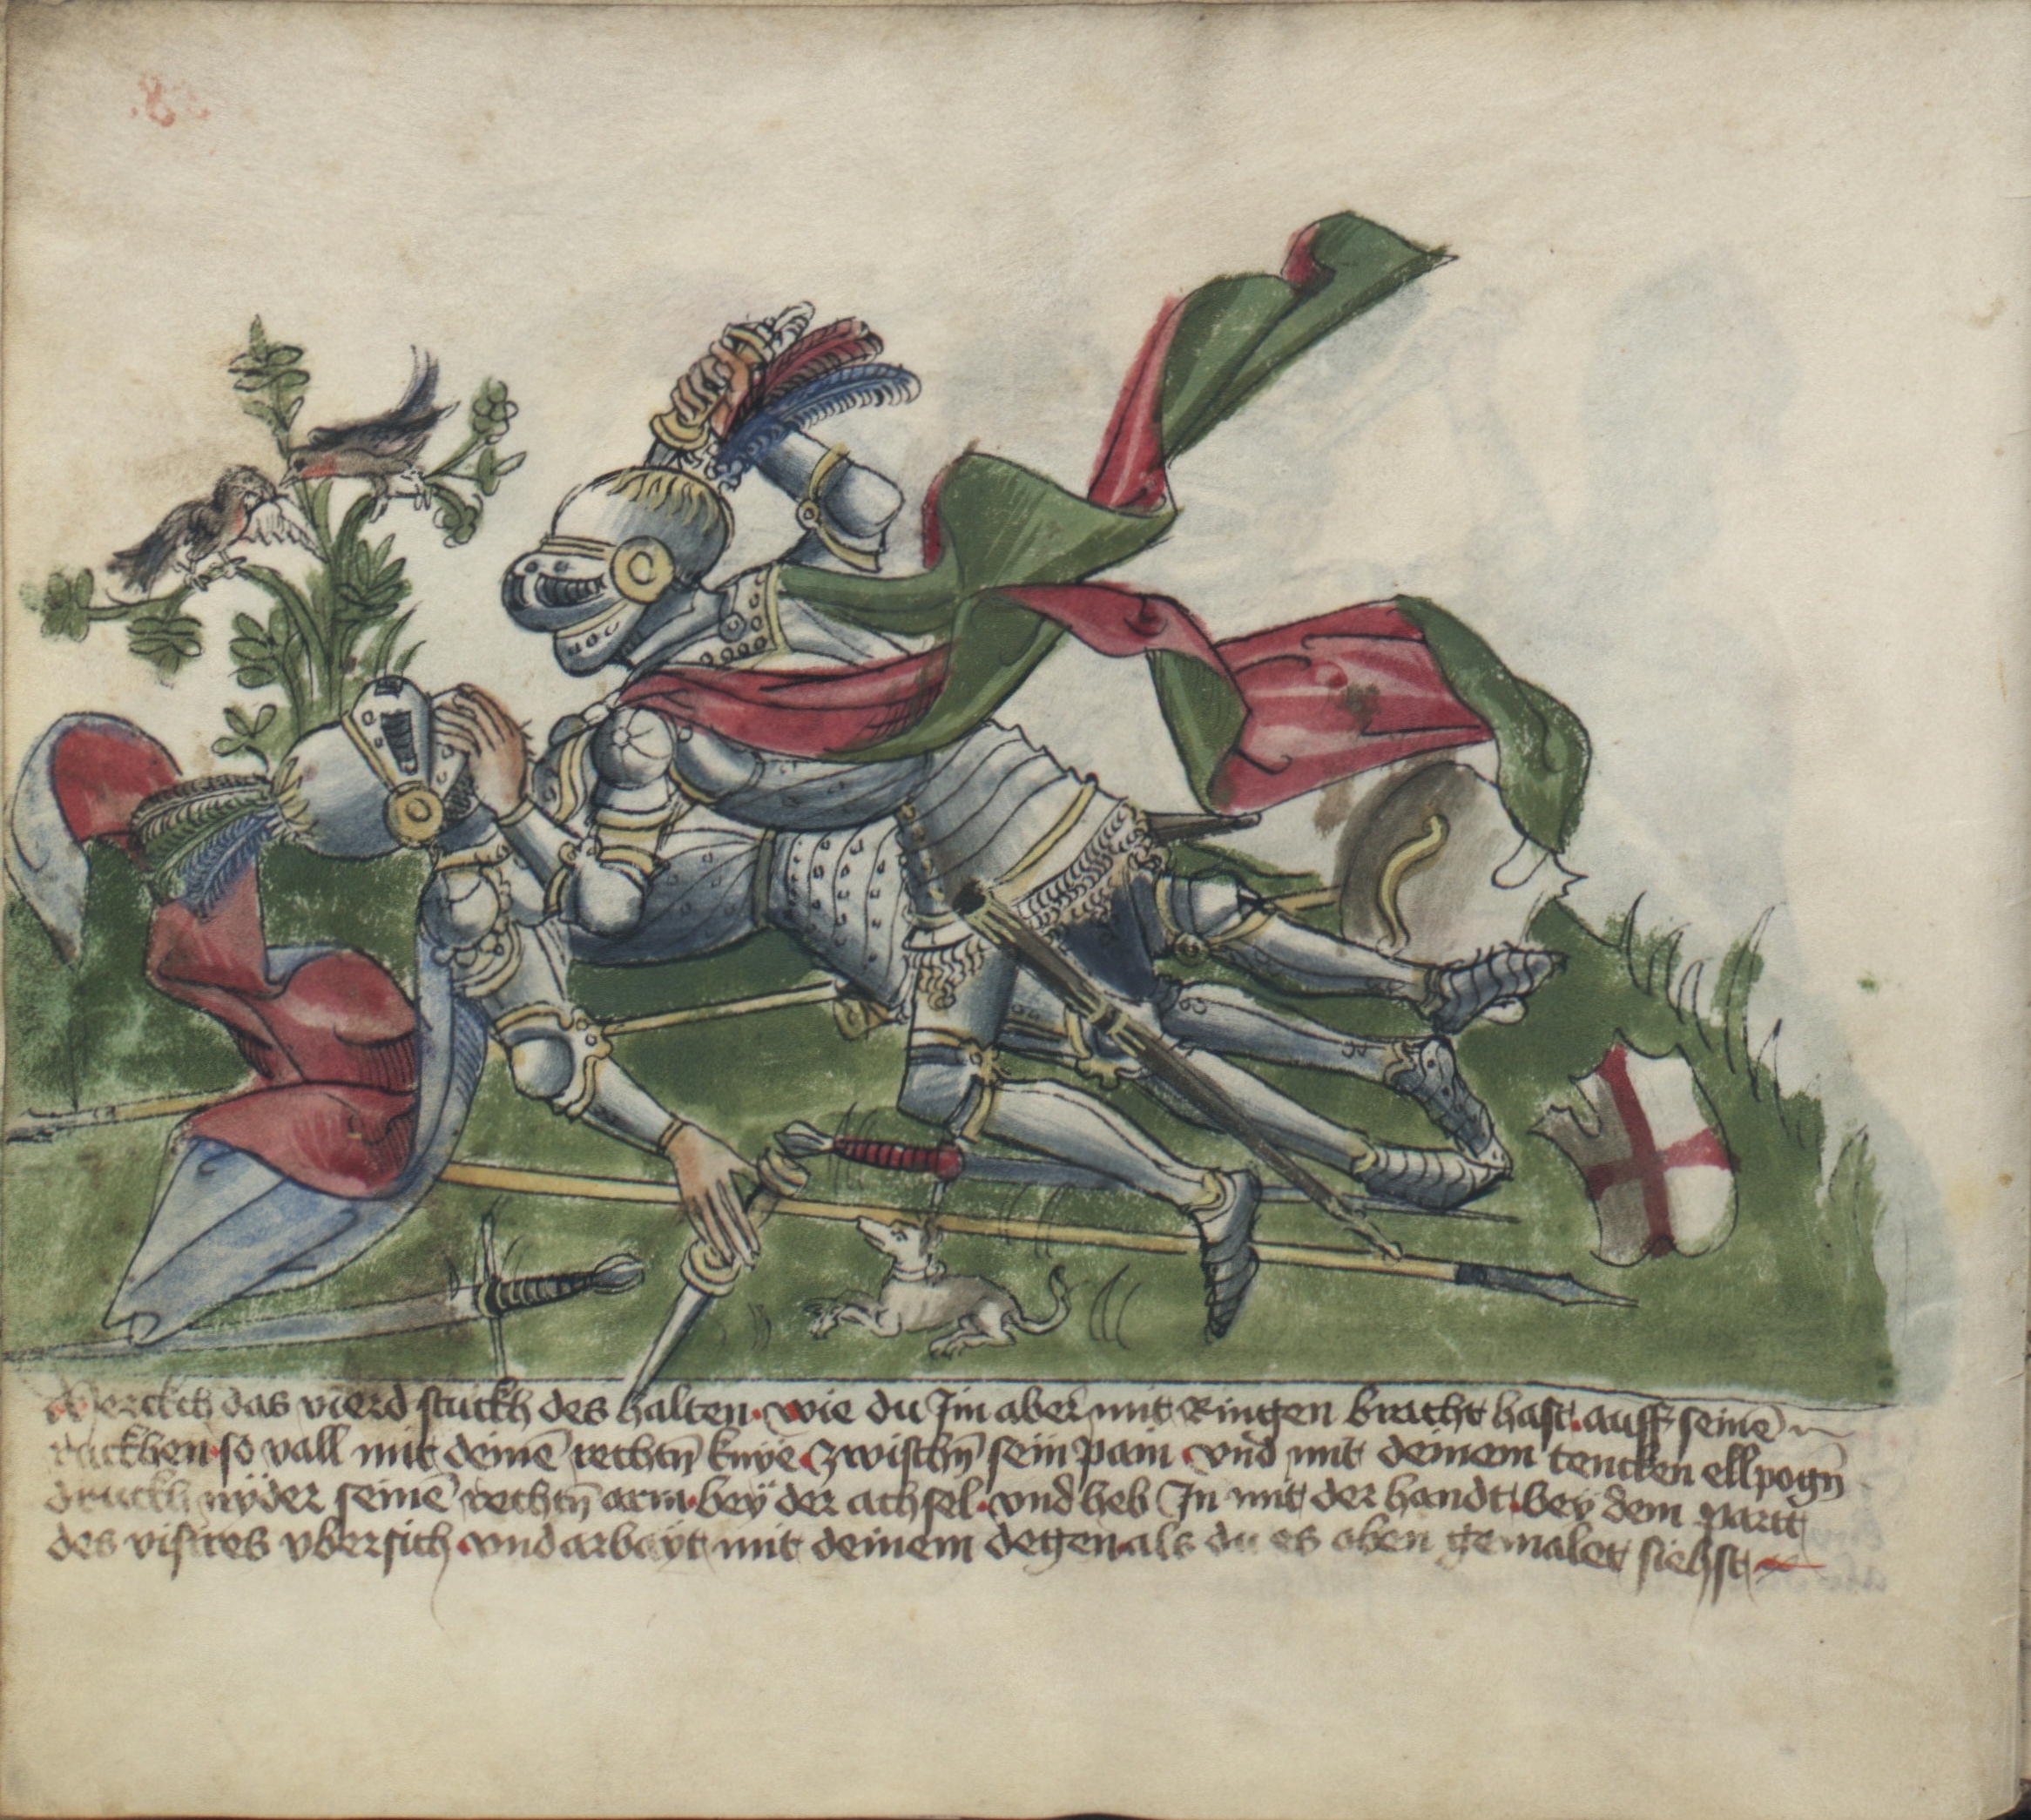 Merckch das vierd stuckh des halten · wie du Im aber mit Ringen bracht hast · auff seinē
ruckhen · so vall mit deinē rechtn̄ knye · zwischn̄ sein pain · vnd mit deinem tencken ellpogn̄
druckh nÿder seinē rechtn̄ arm · beÿ der achsel · vnd heb In mit der handt · beÿ dem partt
des visires vbersich · vnd arbayt mit deinem degen · als du es oben gemalet siehst